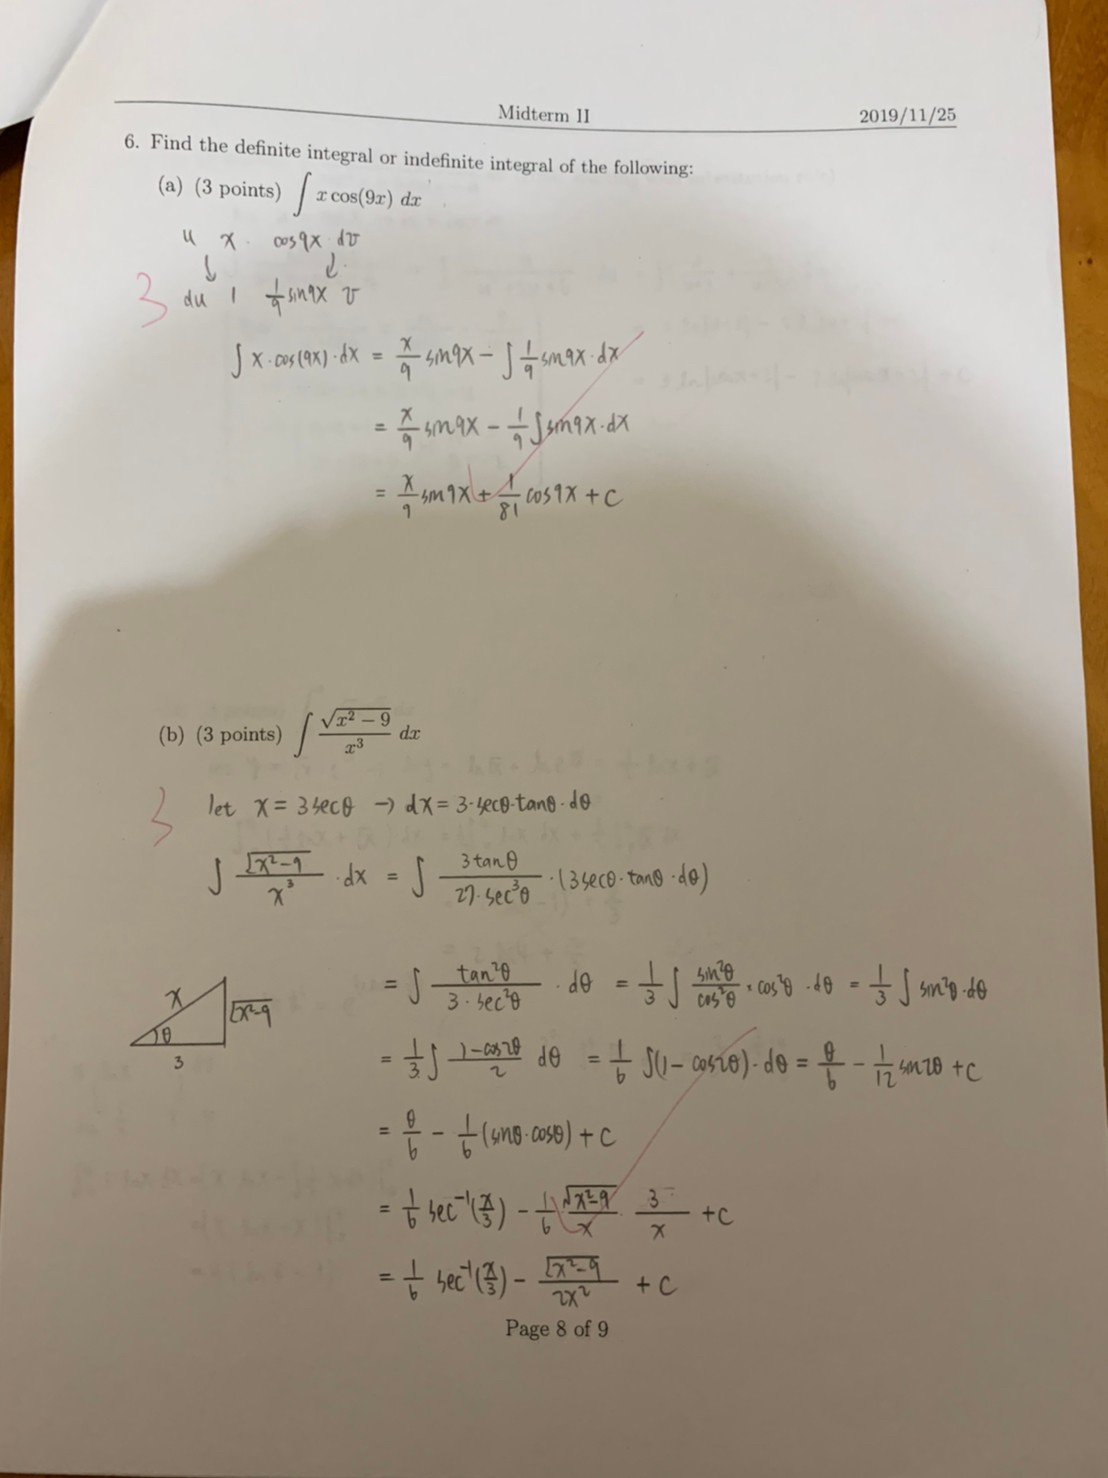 Midterm II 2019/11/25
6. Find the definite integral or indefinite integral of the following:
(a) (3 points) ∫ x cos(9x) dx
u x · cos9x dv
↓ ↓
3
du 1 1/9 sin9x v
∫ x·cos(9x)·dx = x/9 sin9x − ∫ 1/9 sin9x·dx
= x/9 sin9x − 1/9 ∫ sin9x·dx
= x/9 sin9x + 1/81 cos9x + C
(b) (3 points) ∫ √(x² − 9)/x³ dx
3
let x = 3secθ → dx = 3·secθ·tanθ·dθ
∫ √(x²−9)/x³ · dx = ∫ 3tanθ/(27·sec³θ) · (3secθ·tanθ·dθ)
= ∫ tan²θ/(3·sec²θ) · dθ = 1/3 ∫ sin²θ/cos²θ × cos²θ · dθ = 1/3 ∫ sin²θ·dθ
x √(x²−9) θ 3
= 1/3 ∫ (1−cos2θ)/2 dθ = 1/6 ∫(1−cos2θ)·dθ = θ/6 − 1/12 sin2θ + C
= θ/6 − 1/6 (sinθ·cosθ) + C
= 1/6 sec⁻¹(x/3) − 1/6 √(x²−9)/x · 3/x + C
= 1/6 sec⁻¹(x/3) − √(x²−9)/2x² + C
Page 8 of 9